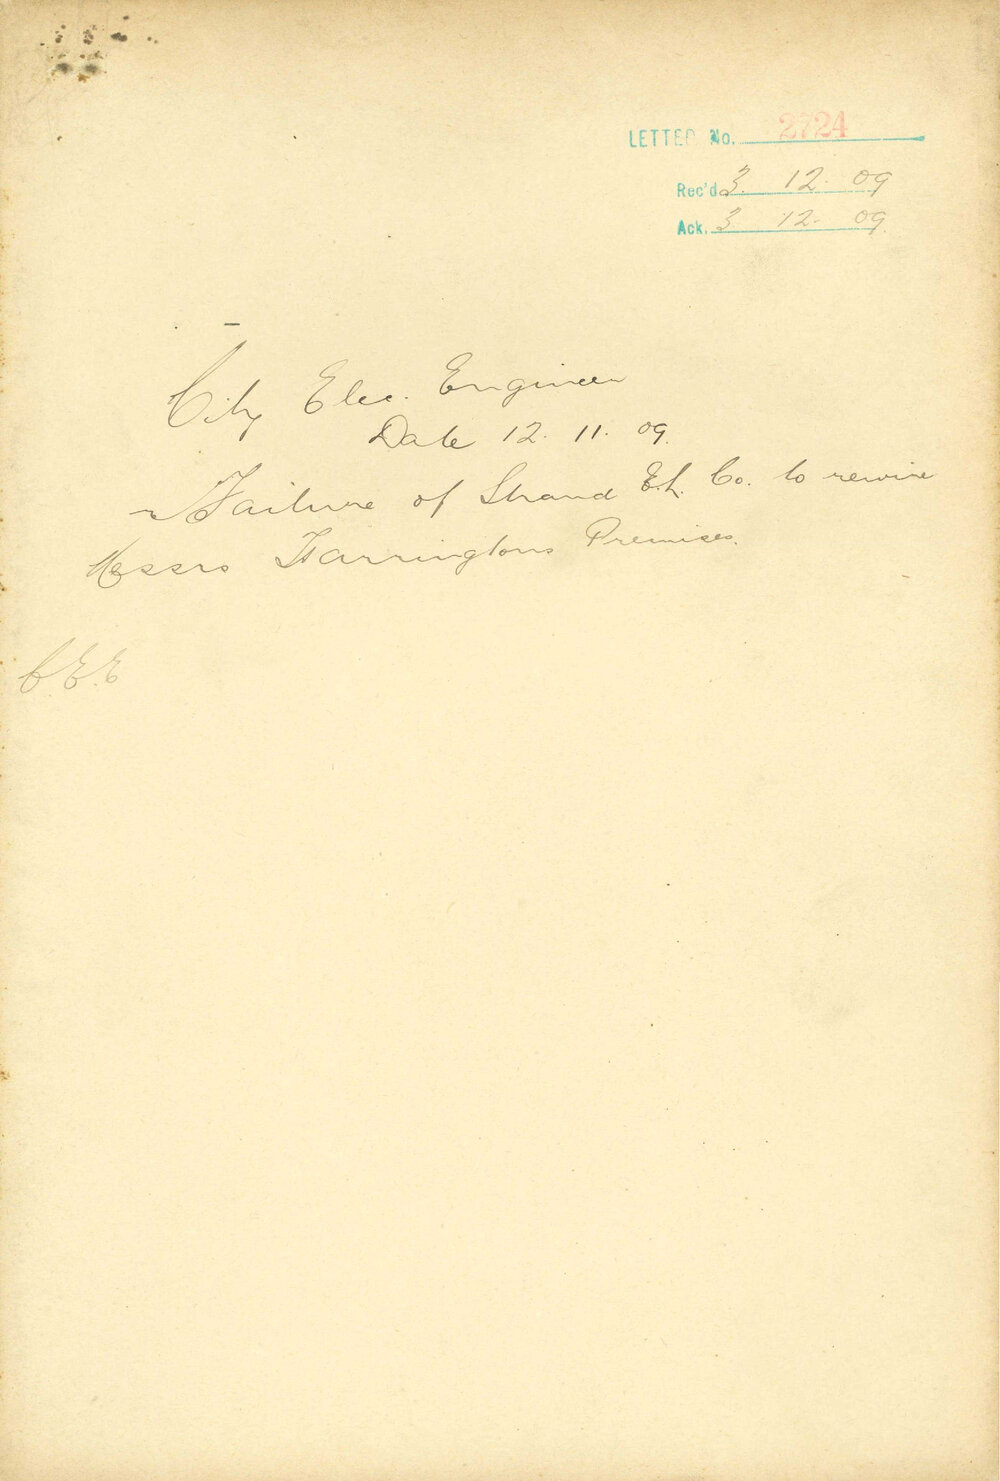 LETTER No. 2724
Rec'd 3. 12. 09
Ack. 3 12. 09.
City Elec. Engineer
Date 12. 11. 09.
Failure of Strand E.L. Co. to rewire
Messrs Harringtons Premises.
C.E.E